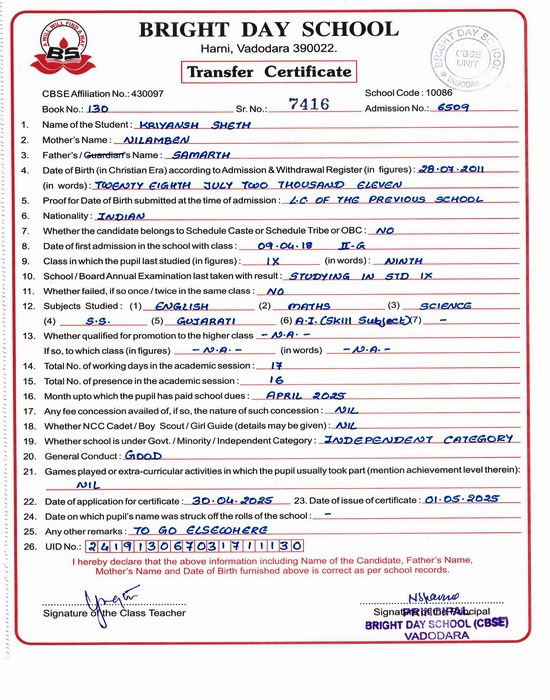 A WILL WILL FIND A WAY
BS
BRIGHT DAY SCHOOL
Harni, Vadodara 390022.
Transfer Certificate
BRIGHT DAY SCHOOL
CBSE
UNIT
VADODARA
CBSE Affiliation No.: 430097 School Code : 10086
Book No.: 130 Sr. No.: 7416 Admission No.: 6509
1. Name of the Student : KRIYANSH SHETH
2. Mother's Name : NILAMBEN
3. Father's / Guardian's Name : SAMARTH
4. Date of Birth (in Christian Era) according to Admission & Withdrawal Register (in figures) : 28-07-2011
(in words) : TWENTY EIGHTH JULY TWO THOUSAND ELEVEN
5. Proof for Date of Birth submitted at the time of admission : L.C OF THE PREVIOUS SCHOOL
6. Nationality : INDIAN
7. Whether the candidate belongs to Schedule Caste or Schedule Tribe or OBC : NO
8. Date of first admission in the school with class : 09-04-18 II-G
9. Class in the pupil last studied (in figures) : IX (in words) : NINTH
10. School / Board Annual Examination last taken with result : STUDYING IN STD IX
11. Whether failed, if so once / twice in the same class : NO
12. Subjects Studied : (1) ENGLISH (2) MATHS (3) SCIENCE
(4) S.S. (5) GUJARATI (6) A.I. (Skill Subject) (7) -
13. Whether qualified for promotion to the higher class - N.A. -
If so, to which class (in figures) - N.A. - (in words) - N.A. -
14. Total No. of working days in the academic session : 17
15. Total No. of presence in the academic session : 16
16. Month upto which the pupil has paid school dues : APRIL 2025
17. Any fee concession availed of, if so, the nature of such concession : NIL
18. Whether NCC Cadet / Boy Scout / Girl Guide (details may be given) : NIL
19. Whether school is under Govt. / Minority / Independent Category : INDEPENDENT CATEGORY
20. General Conduct : GOOD
21. Games played or extra-curricular activities in which the pupil usually took part (mention achievement level therein) :
NIL
22. Date of application for certificate : 30-04-2025 23. Date of issue of certificate : 01-05-2025
24. Date on which pupil's name was struck off the rolls of the school : -
25. Any other remarks : TO GO ELSEWHERE
26. UID No.: 241913067031711130
I hereby declare that the above information including Name of the Candidate, Father's Name,
Mother's Name and Date of Birth furnished above is correct as per school records.
Signature of the Class Teacher Signature of the Principal
PRINCIPAL
BRIGHT DAY SCHOOL (CBSE)
VADODARA